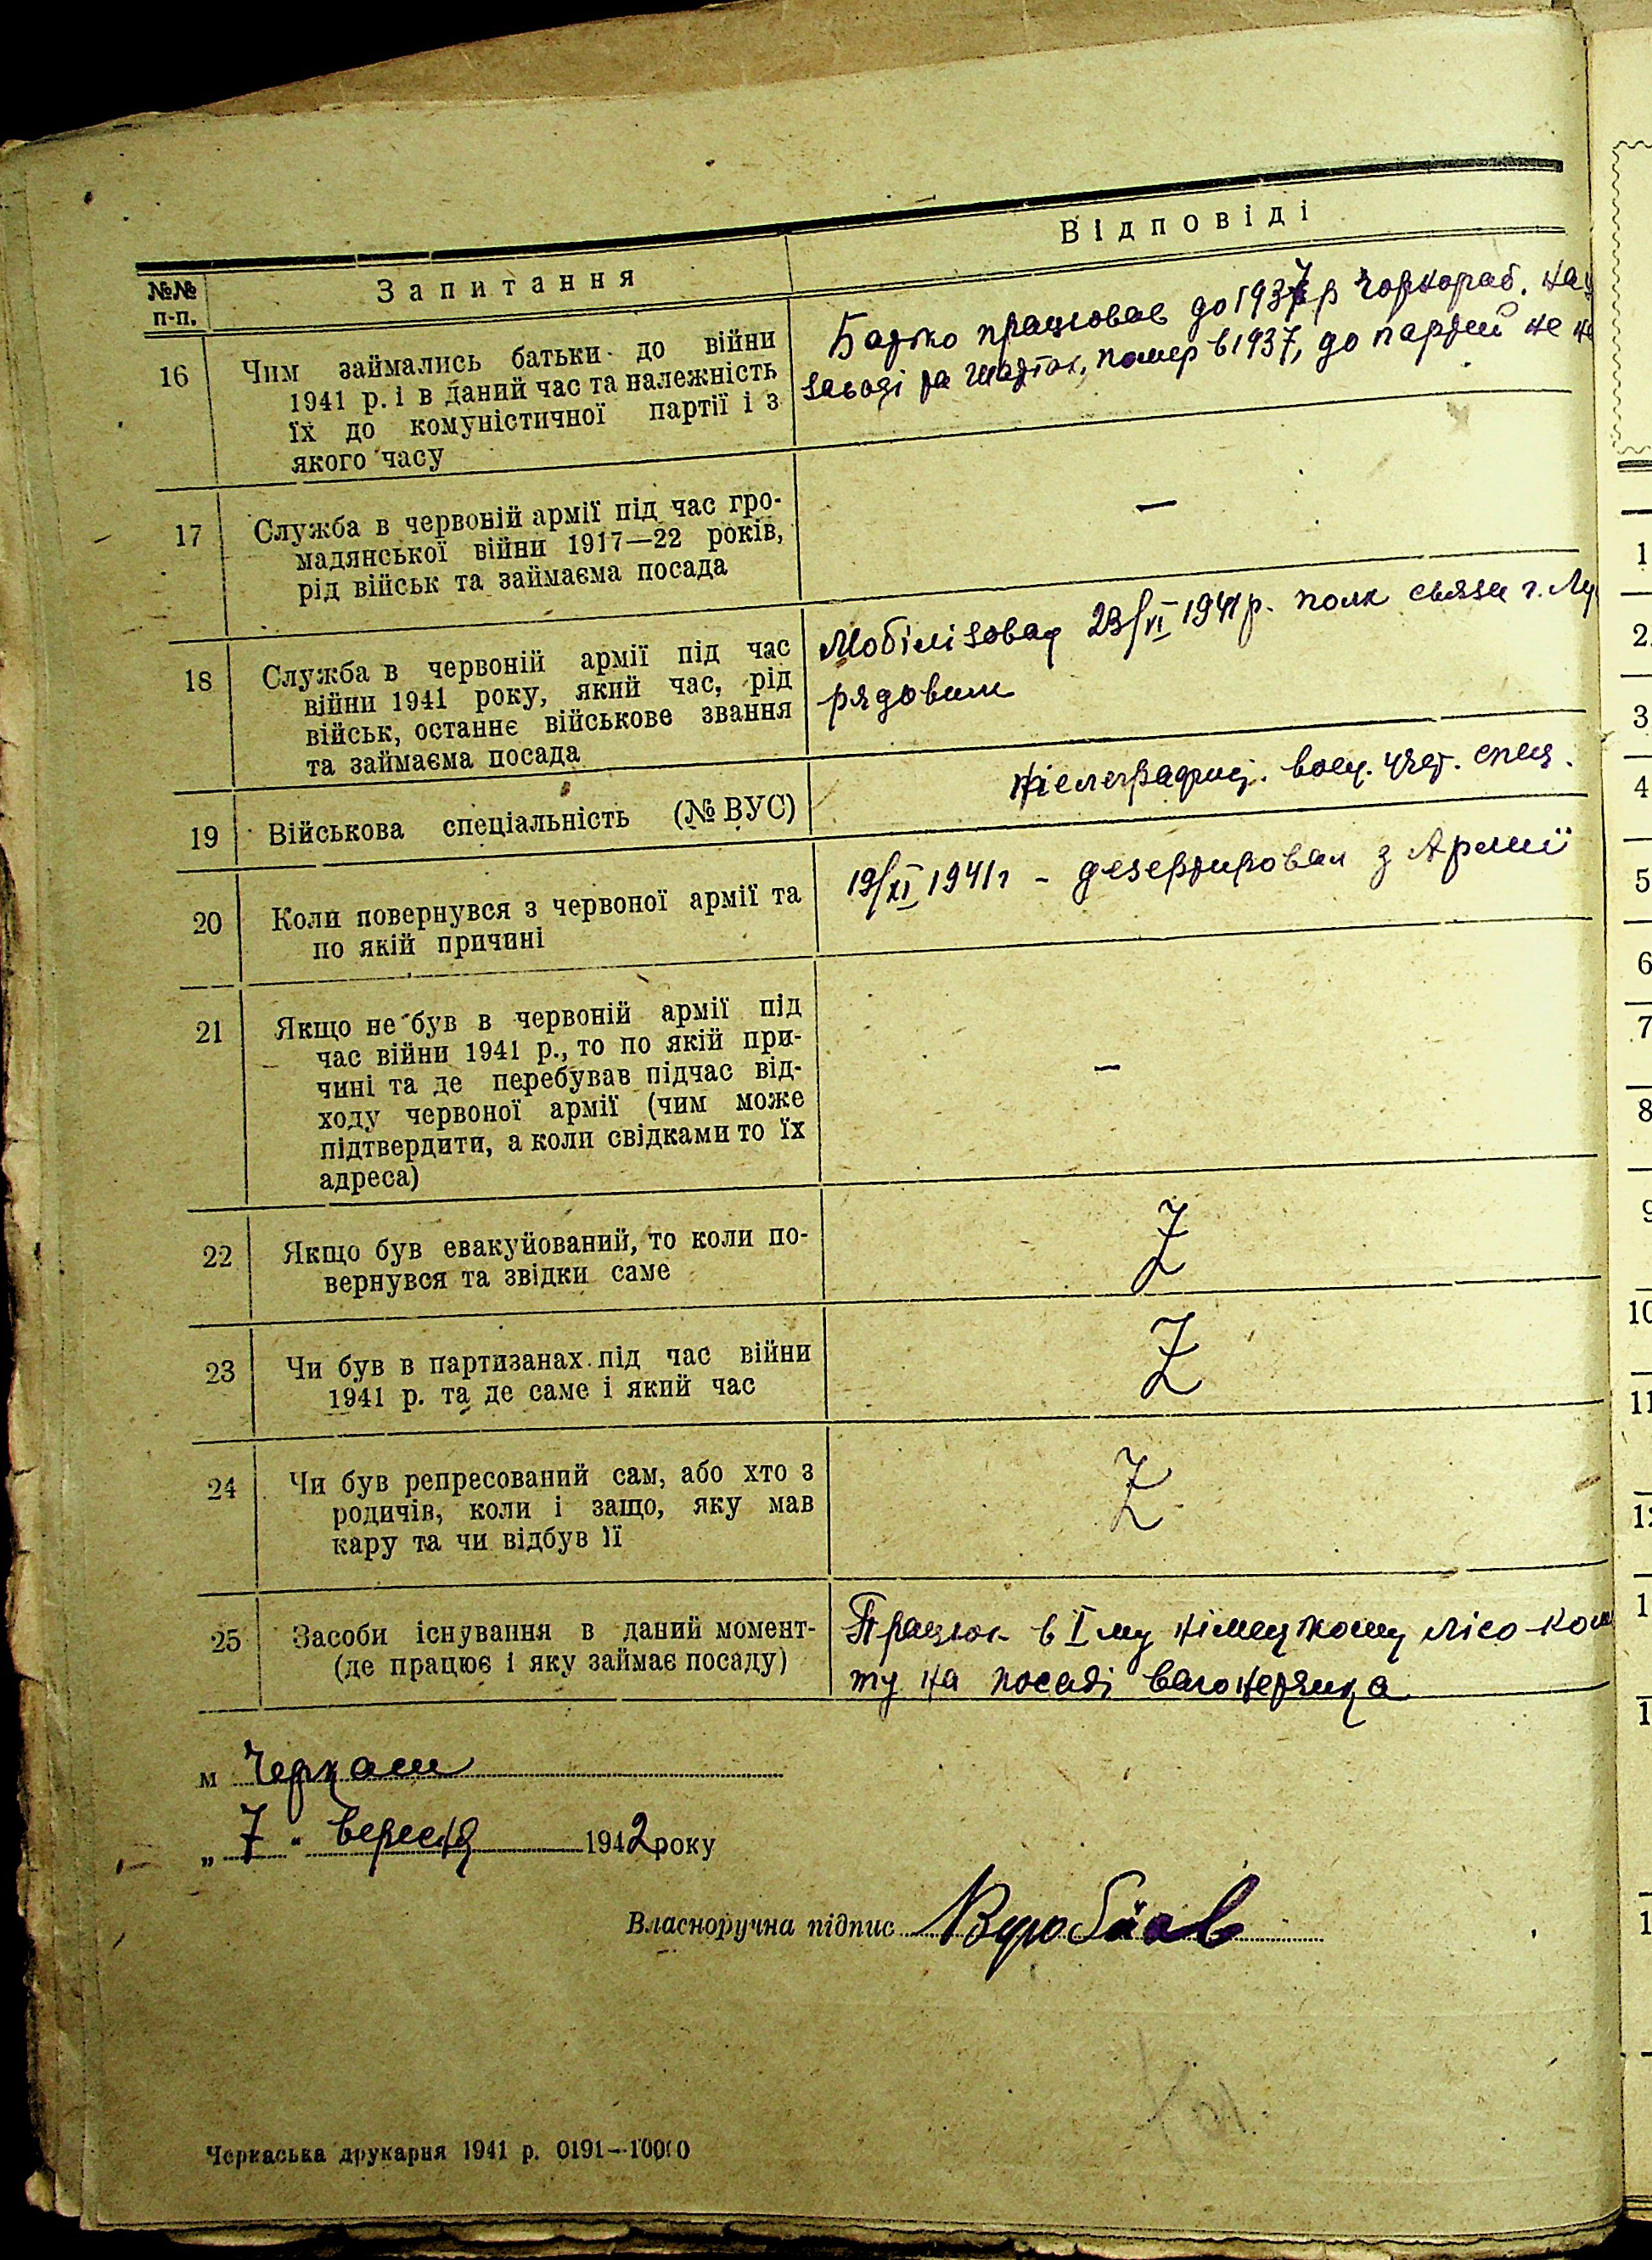 №№ п-п.
Запитання
Відповіді
16
Чим займались батьки до війни
1941 р. і в даний час та належність
їх до комуністичної партії і з
якого часу
Батко працював до 1937 р Чоркораб. на
заводі помер в 1937, до партий не
17
Служба в червоній армії під час гро-
мадянської війни 1917—22 років,
рід військ та займаєма посада
—
18
Служба в червоній армії під час
війни 1941 року, який час, рід
військ, останнє військове звання
та займаєма посада
Мобілізован 23/VI 1941 р. полк связи г.
рядовим
19
Військова спеціальність (№ ВУС)
воен. учет. спец.
20
Коли повернувся з червоної армії та
по якій причині
19/XI 1941 г - дезертировал з Армиї
21
Якщо не був в червоній армії під
час війни 1941 р., то по якій при-
чині та де перебував підчас від-
ходу червоної армії (чим може
підтвердити, а коли свідками то їх
адреса)
—
22
Якщо був евакуйований, то коли по-
вернувся та звідки саме
Z
23
Чи був в партизанах під час війни
1941 р. та де саме і який час
Z
24
Чи був репресований сам, або хто з
родичів, коли і защо, яку мав
кару та чи відбув її
Z
25
Засоби існування в даний момент-
(де працює і яку займає посаду)
Працюю в I му німецкому лісо-ком
ту на посаді
м Черкаси
„ 7 “ вересня 1942 року
Власноручна підпис
Черкаська друкарня 1941 р. 0191—10000
1
2
3
4
5
6
7
8
9
10
11